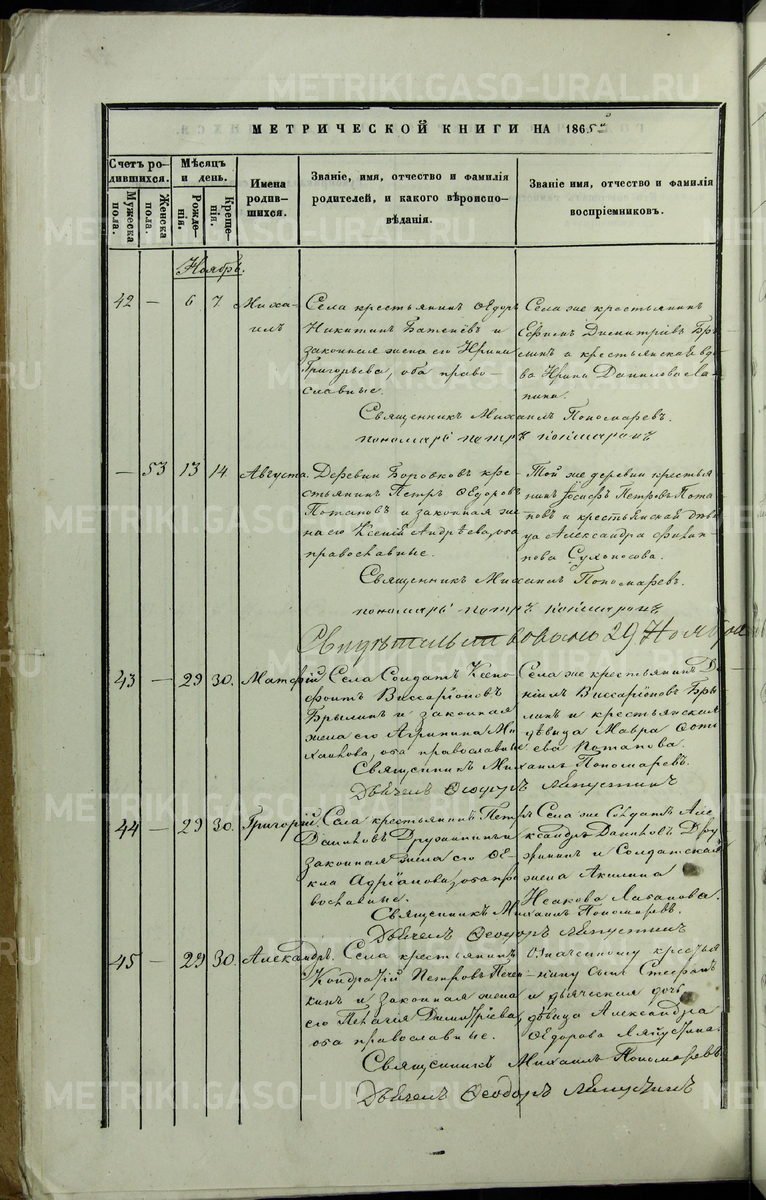 METRIKI.GASO-URAL.RU
МЕТРИЧЕСКОЙ КНИГИ НА 1865й
Счетъ родившихся.
Мѣсяцъ и день.
Имена родившихся.
Званіе, имя, отчество и фамилія родителей, и какого вѣроисповѣданія.
Званіе имя, отчество и фамилія воспріемниковъ.
Мужеска пола.
Женска пола.
Рожденія.
Крещенія.
Ноябрь.
42 — 6 7 Михаилъ
Села крестьянинъ Ѳедоръ
Никитинъ Батеневъ и
законная жена его Ирина
Григорьева, оба православные.
Села же крестьянинъ
Ефимъ Димитріевъ Брылинъ и крестьянская вдова Ирина Данилова
Священникъ Михаилъ Пономаревъ.
— 53 13 14 Августа.
Деревни Боровковъ крестьянинъ Петръ Ѳедоровъ
Потаповъ и законная жена его Ксенія Андрѣева, оба
православные.
Той же деревни крестьянинъ Іосифъ Петровъ Потаповъ и крестьянская дѣвица Александра Филиппова
Священникъ Михаилъ Пономаревъ.
29 Ноября
43 — 29 30. Матѳій
Села Солдатъ Ксенофонтъ Виссаріоновъ
Брылинъ и законная
жена его Агрипина Михаилова, оба православные
Села же крестьянинъ Даніилъ Виссаріоновъ Брылинъ и крестьянская
дѣвица Мавра
Потапова.
Священникъ Михаилъ Пономаревъ.
Дьячекъ Ѳеодоръ Ляпустинъ
44 — 29 30. Григорій.
Села крестьянинъ Петръ
Даниловъ Дружининъ и
законная жена его Ѳекла Адріанова, оба православные.
Села же Солдатъ Александръ Даниловъ Дружининъ и Солдатская
жена Акилина
Исакова
Священникъ Михаилъ Пономаревъ.
Дьячекъ Ѳеодоръ Ляпустинъ
45 — 29 30. Александръ.
Села крестьянинъ
Кондратій Петровъ
и законная жена
его Пелагія Димитріева,
оба православные.
Означенному крестьянину сынъ Стефанъ
и дьяческая дочь
дѣвица Александра
Ѳедорова Ляпустина.
Священникъ Михаилъ Пономаревъ
Дьячекъ Ѳеодоръ Ляпустинъ